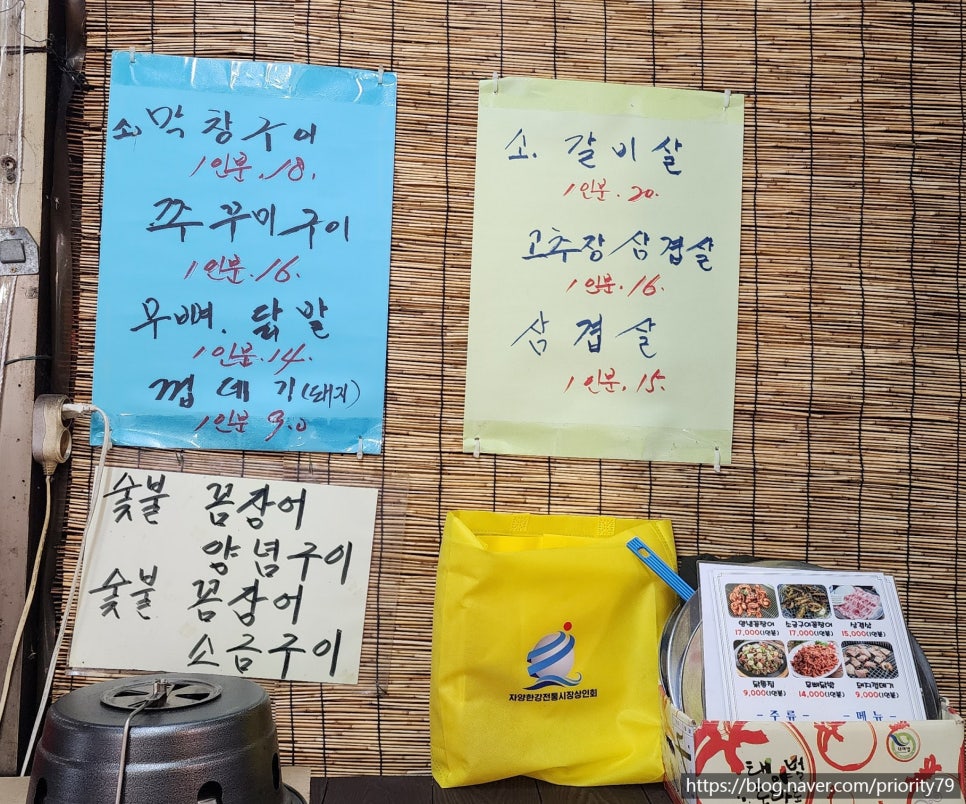 소. 막창구이
1인분. 18.
쭈꾸미구이
1인분. 16.
무뼈. 닭발
1인분. 14.
껍데기(돼지)
1인분 9.0
소. 갈비살
1인분. 20.
고추장삼겹살
1인분. 16.
삼겹살
1인분. 15.
숯불 꼼장어
양념구이
숯불 꼼장어
소금구이
자양한강전통시장상인회
양념꼼장어 소금구이꼼장어 삼겹살
17,000(1인분) 17,000(1인분) 15,000(1인분)
닭똥집 무뼈닭발 돼지껍데기
9,000(1인분) 14,000(1인분) 9,000(1인분)
- 주류 - - 메뉴 -
https://blog.naver.com/priority79